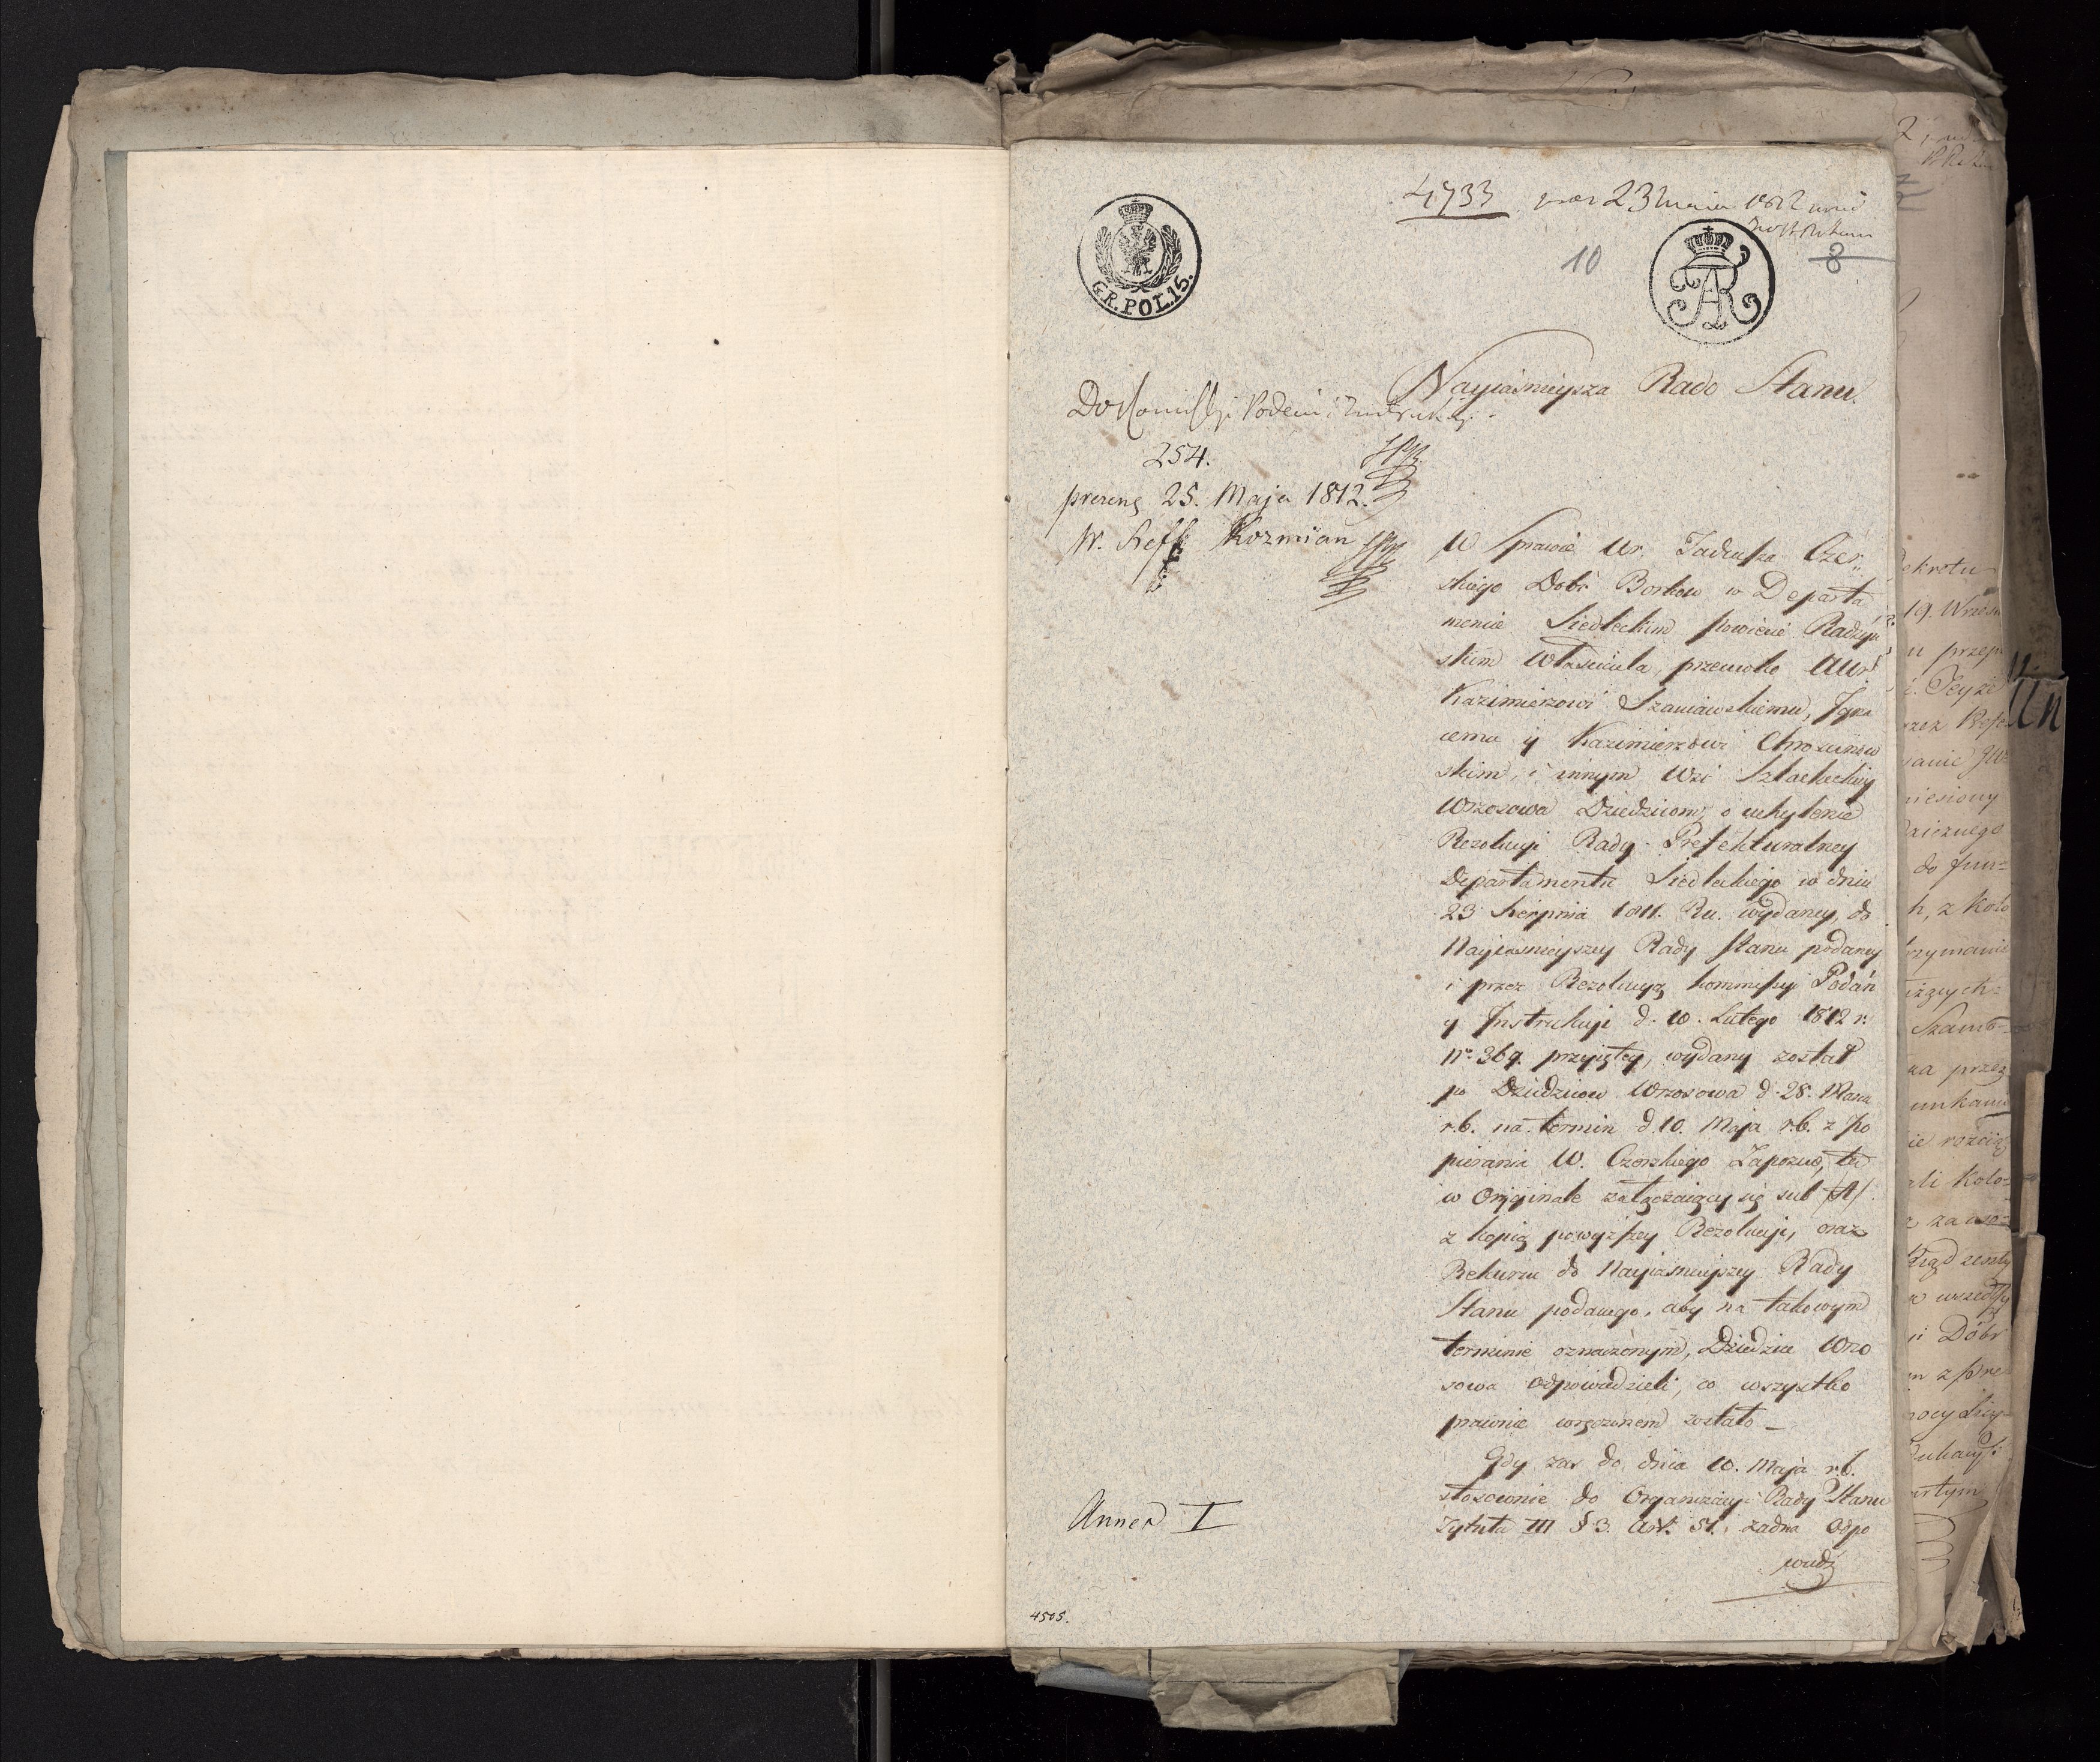 4733
23 Maia 1812
10
8
GR. POL. 15.
AR
Nayiaśnieysza Rado Stanu.
Do Kommissyi Podań i Instrukcyi.
254.
prezent 25. Maja 1812.
W. Reff Kozmian
W Sprawie Ur. Tadeusza Czer„
skiego Dobr Borkow w Departa
mencie Siedleckim Powiecie Radzyń
skim Właściciela, przeciwko UUr.
Kazimierzowi Szaniawskiemu, Igna
cemu y Kazimierzowi Chroscinskiw
skim, i innym Wsi Szlacheckiey
Wrzosowa Dziedzicom, o uchylenie
Rezolucyi Rady Prefekturalney
Departamentu Siedleckiego w dniu
23 Sierpnia 1811. Ru. wydaney, do
Nayiasnieyszey Rady Stanu podaney
i przez Rezolucyą Kommissyi Podań
y Instrukcyi d. 10. Lutego 1812 r.
Nº 369. przyiętey, wydany został
po Dziedzicow Wrzosowa d. 28. Marca
r.b. na termin d. 10. Maja r.b. z po
pierania W. Czerskiego Zapozew, tu
w Orjginale załączaiący się sub /A/
z kopią powyższey Rezolucyi, oraz
Rekursu do Nayiasnieyszey Rady
Stanu podanego, aby na takowym
terminie oznaczonym, Dziedzice Wrzo
sowa odpowiedzieli, co wszystko
prawnie wręczonem zostało –
Gdy zas do dnia 10. Maja r.b.
stosownie do Organizacyi Rady Stanu
Tytułu III § 3. Art. 51. żadna Odpo
wiedz
Annex I
4505.